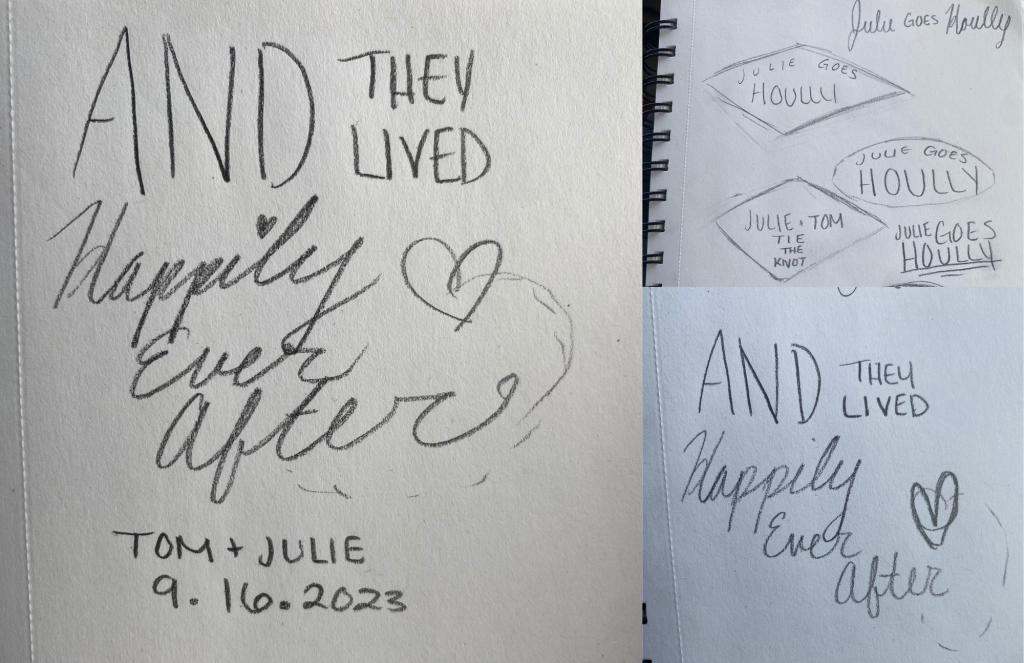 AND THEY
LIVED
Happily
Ever
After
TOM + JULIE
9.16.2023
Julie GOES Hoully
JULIE GOES
HOULLY
JULIE GOES
HOULLY
JULIE + TOM
TIE
THE
KNOT
JULIE GOES
HOULLY
AND THEY
LIVED
Happily
Ever
After